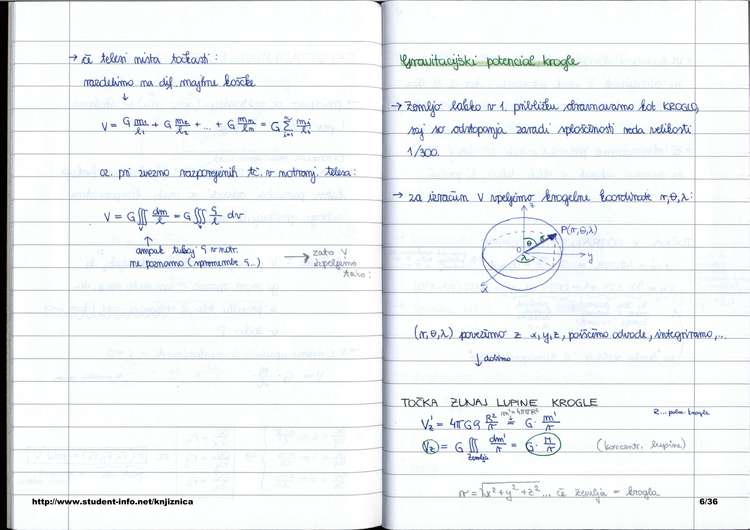 → če telesi nista točkasti:
razdelimo na dif. majhne koščke
↓
V = G m₁/l₁ + G m₂/l₂ + ... + G mₙ/lₙ = G Σ mᵢ/lᵢ
oz. pri zvezno razporejenih tč. v notranj. telesa:
V = G ∭ dm/l = G ∭ ρ/l dv
↑
ampak tukaj ρ v notr.
ne poznamo (sprememba ρ...)
→ zato V
izpeljemo
tako:
Gravitacijski potencial krogle
→ Zemljo lahko v 1. približku obravnavamo kot KROGLO,
saj so odstopanja zaradi sploščenosti reda velikosti
1/300.
→ za izračun V vpeljemo krogelne koordinate r, θ, λ:
z
P(r,θ,λ)
θ r
0
λ
y
x
(r, θ, λ) povežimo z x, y, z, poiščimo odvode, integriramo, ...
↓ dobimo
TOČKA ZUNAJ LUPINE KROGLE
R... polm. krogle
m' = 4πρR²
Vz' = 4πGρ R²/r = G · m'/r
Vz = G ∭ dm'/r = G · M/r (koncentr. lupine)
Zemlja
r = √x² + y² + z² ... če zemlja = krogla
http://www.student-info.net/knjiznica
6/36